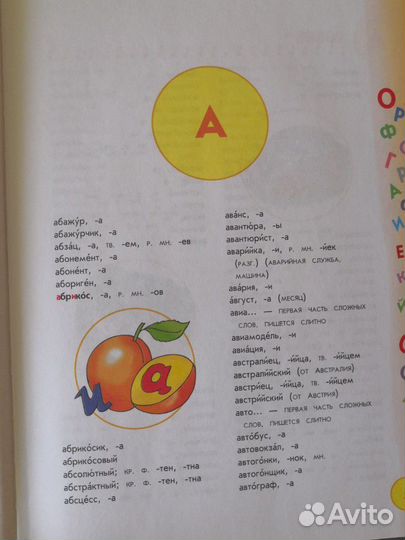 А
абажу́р, -а
абажу́рчик, -а
абза́ц, -а, тв. -ем, р. мн. -ев
абонеме́нт, -а
абоне́нт, -а
абориге́н, -а
абрико́с, -а, р. мн. -ов
и а
абрико́сик, -а
абрико́совый
абсолю́тный; кр. ф. -тен, -тна
абстра́ктный; кр. ф. -тен, -тна
абсце́сс, -а
ава́нс, -а
авантю́ра, -ы
авантюри́ст, -а
авари́йка, -и, р. мн. -и́ек
(разг.) (аварийная служба,
машина)
ава́рия, -и
а́вгуст, -а (месяц)
авиа... — первая часть сложных
слов, пишется слитно
авиамоде́ль, -и
авиа́ция, -и
австрали́ец, -и́йца, тв. -и́йцем
австрали́йский (от Австралия)
австри́ец, -и́йца, тв. -и́йцем
австри́йский (от Австрия)
авто... — первая часть сложных
слов, пишется слитно
авто́бус, -а
автовокза́л, -а
автого́нки, -нок, мн.
автого́нщик, -а
авто́граф, -а
Avito